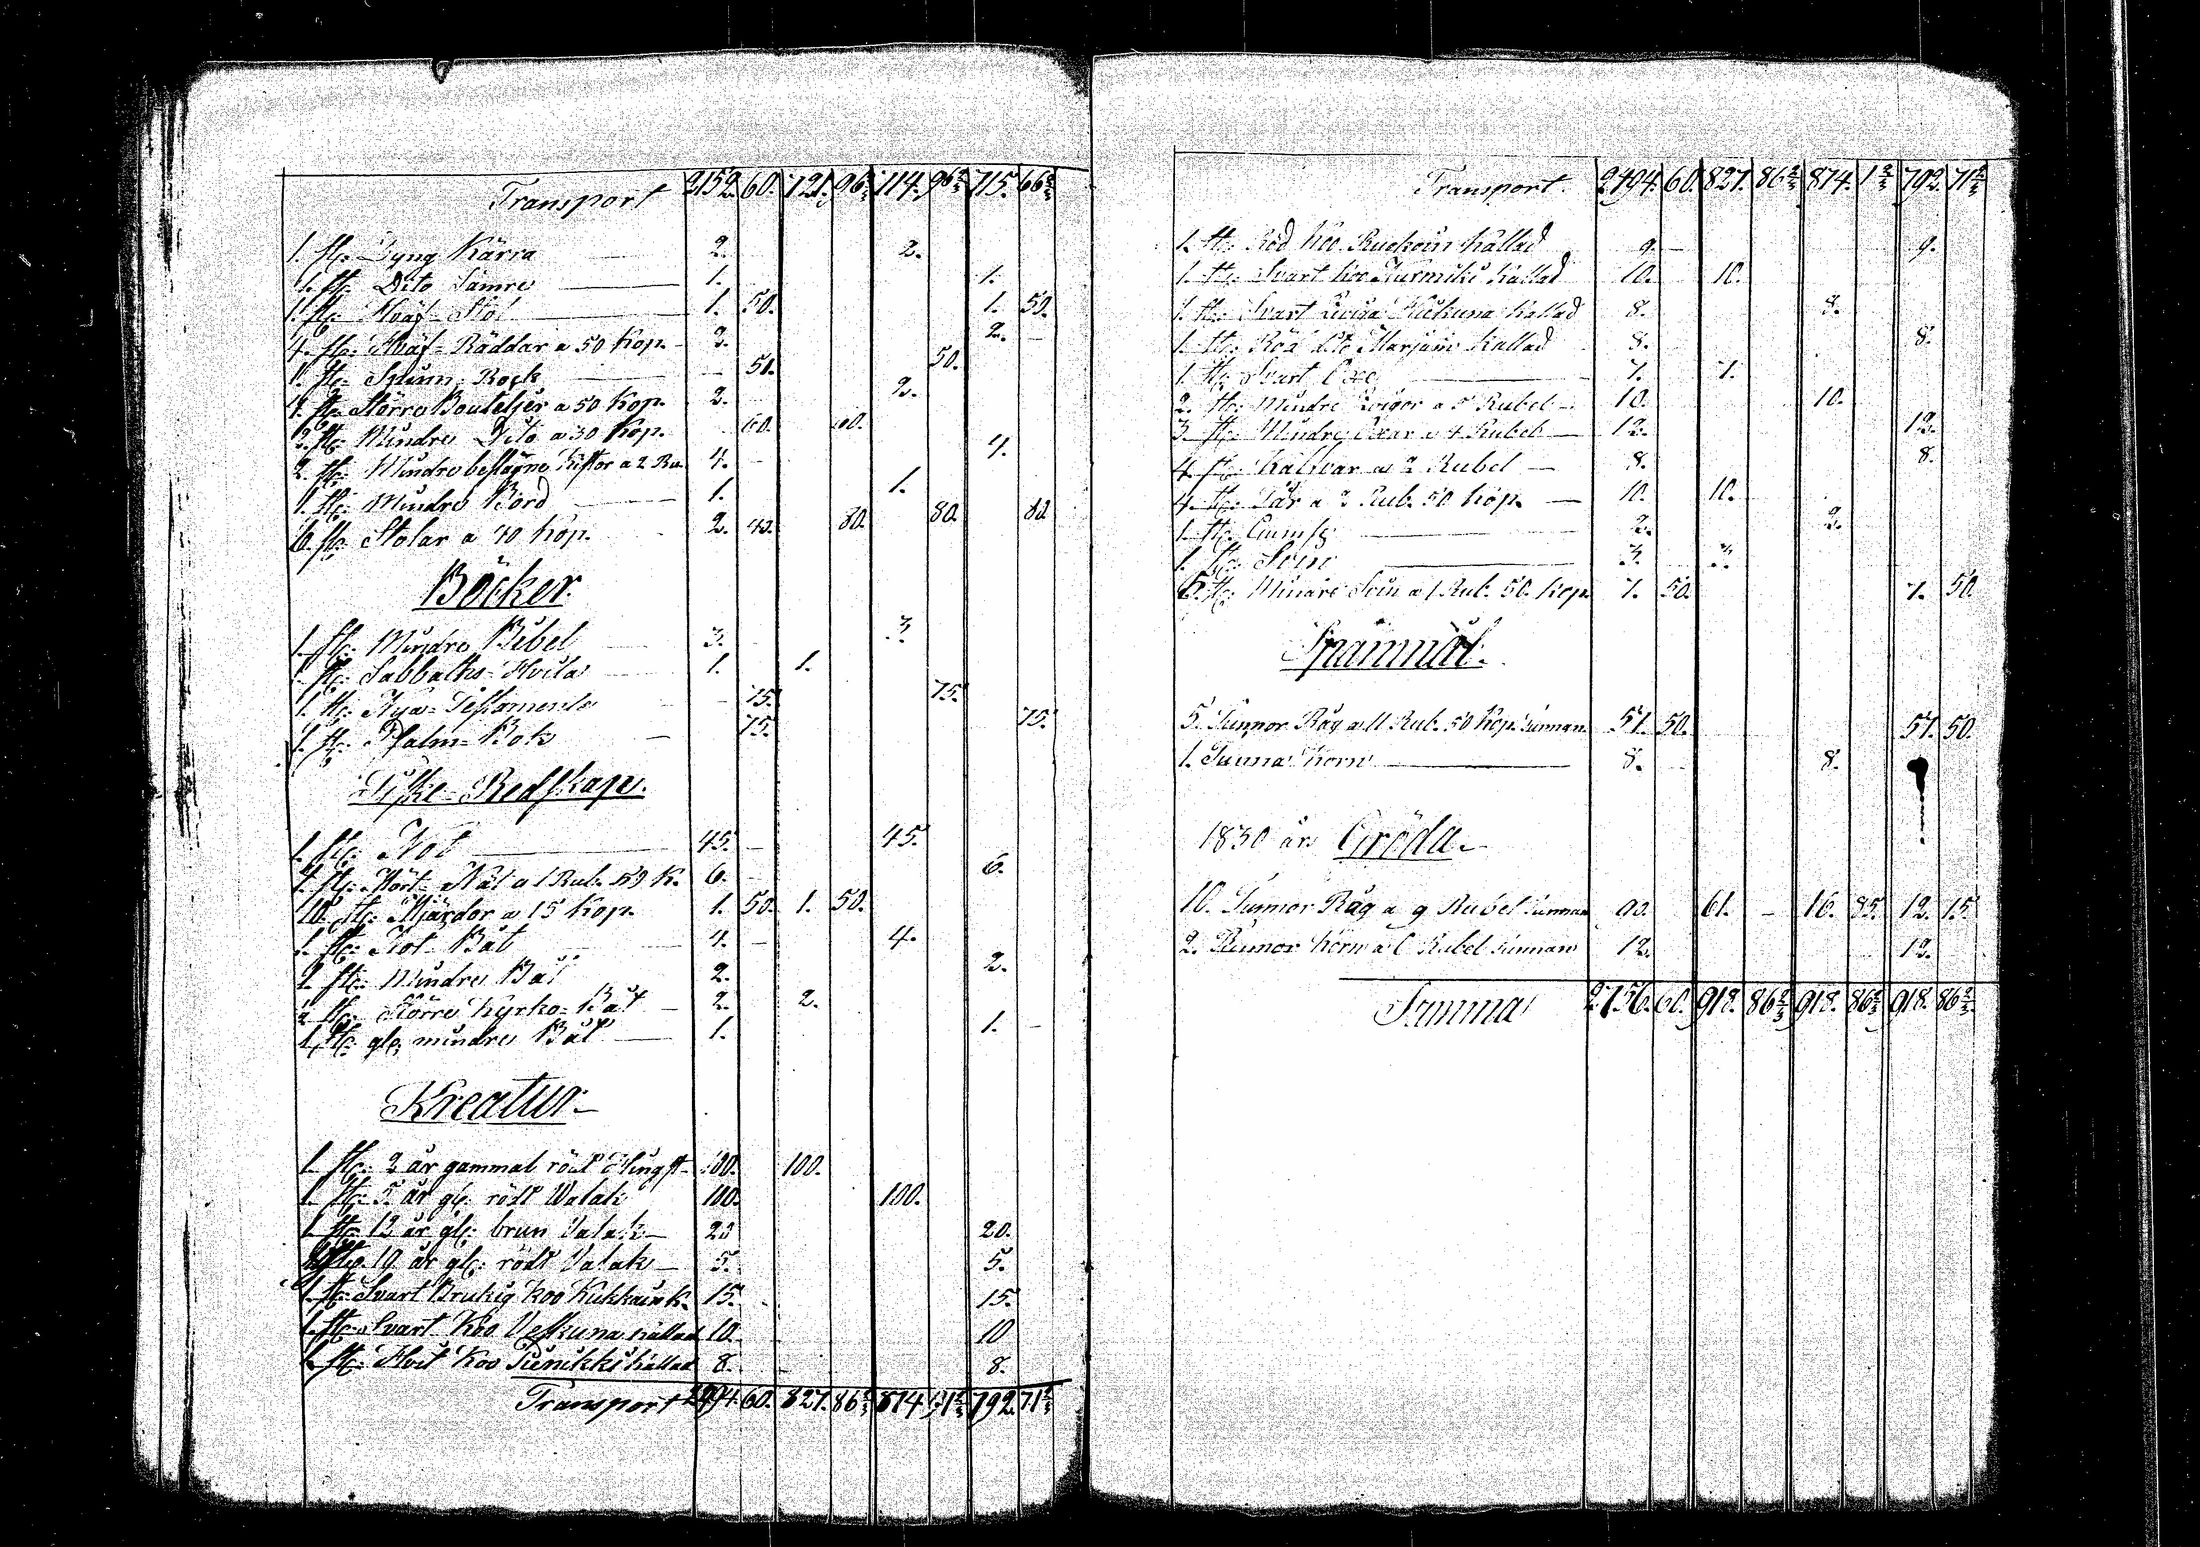 Transport 2152. 60. 721. 96⅔ 714. 96⅔ 715. 66⅔
1. st: Dyng Kärra 2. 2.
1. st: Dito Sämre 1. 1.
1. st: Wäf-Stol 1. 50. 1. 50.
4. st: Wäf-Räddar a 50 Kop. 2. 2.
1. st: Spinn-Rock 50. 50.
4. st: Större Bouteljer a 50 Kop. 2. 2.
2. st: Mindre Dito a 30 Kop. 60. 60.
2. st: Mindre beslagne Kistor a 2 Ru. 4. 4.
1. st: Mindre Bord 1. 1.
6. st: Stolar a 40 Kop. 2. 40. 80. 80. 80
Böcker.
1. st: Mindre Bibel 3. 3.
1. st: Sabbaths-Hvila 1. 1.
1. st: Nya-Testamente 75. 75.
1. st: Psalm-Bok 75. 75.
Fiske-Redskape.
1. st: Not 45. 45.
4. st: Mört-Nät a 1 Rub. 50 K. 6. 6.
10. st: Mjärdor a 15 Kop. 1. 50. 1. 50.
1. st: Not-Båt 4. 4.
1. st: Mindre Båt 2. 2.
st: Större Kyrko-Båt 2. 2.
1. st: gl: mindre Båt 1. 1.
Kreatur
1. st: 2 år gammal röd Hingst 100. 100.
1. st: 5 år gl: rödt Walak 100. 100.
1. st: 12 år gl: brun Valak 20 20.
st: 19 år gl: rödt Valak 5. 5.
1. st: Svart Brukig Koo Kukkain K. 15. 15.
1. st: Svart Koo Veskuna kallad 10. 10
1. st: Hvit Koo kallad 8. 8.
Transport 2494. 60. 827. 86⅔ 874. 1⅔ 792. 71⅔
Transport. 2494. 60. 827. 86⅔ 874. 1⅔ 792. 71⅔
1. st: Röd Koo Kallad 9. 9.
1. st: Svart Koo Kallad 10. 10.
1. st: Svart Qviga Kallad 8. 8.
1. st: Röd dito Marjain Kallad 8. 8.
1. st: Svart Oxe 7. 7.
2. st: Mindre Qvigor a 5 Rubel 10. 10.
3. st: Mindre Oxar a 4 Rubel 12. 12.
4. st: Kalfvar a 2 Rubel 8. 8.
4. st: Får a 2 Rub. 50 Kop. 10. 10.
1. st: Gumse 2. 2.
1. st: Svin 3. 3.
5. st: Mindre Svin a 1 Rub. 50. Kop. 7. 50. 7. 50
Spanmål.
5. Tunnor Råg a 11 Rub. 50 Kop. tunnan 57. 50. 57. 50.
1. Tunna Korn 8. 8.
1830 års Gröda
10. Tunnor Råg a 9 Rubel tunnan 90. 61. 16. 85. 12. 15.
2. Tunnor Korn a 6 Rubel tunnan 12. 12.
Summa 2756. 60. 918. 86⅔ 918. 86⅔ 918. 86⅔